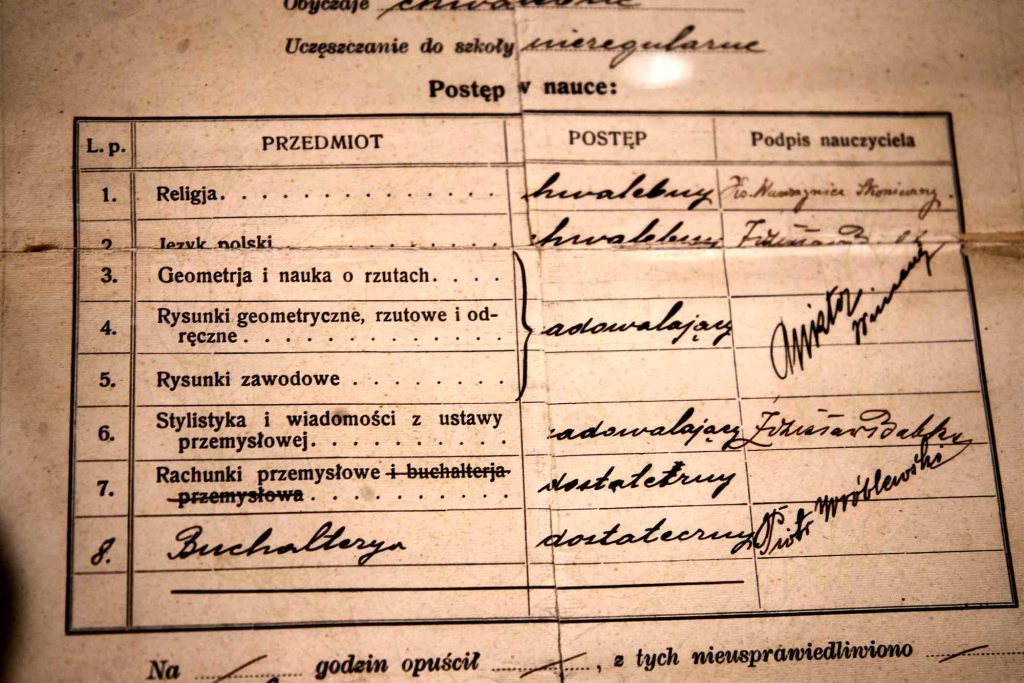 Obyczaje chwalebne
Uczęszczanie do szkoły nieregularne
Postęp w nauce:
L. p. PRZEDMIOT POSTĘP Podpis nauczyciela
1. Religja. . . . . . . . . . . . . . . chwalebny Ks. Wawrzyniec
2. Język polski . . . . . . . . . . . . chwalebny
3. Geometrja i nauka o rzutach. . . .
4. Rysunki geometryczne, rzutowe i od-
ręczne . . . . . . . . . . . . . zadowalający
5. Rysunki zawodowe . . . . . . . .
6. Stylistyka i wiadomości z ustawy
przemysłowej. . . . . . . . . . zadowalający
7. Rachunki przemysłowe i buchalterja
przemysłowa . . . . . . . . . . dostateczny
8. Buchalterya dostateczny Piotr Wróblewski
Na godzin opuścił , z tych nieusprawiedliwiono